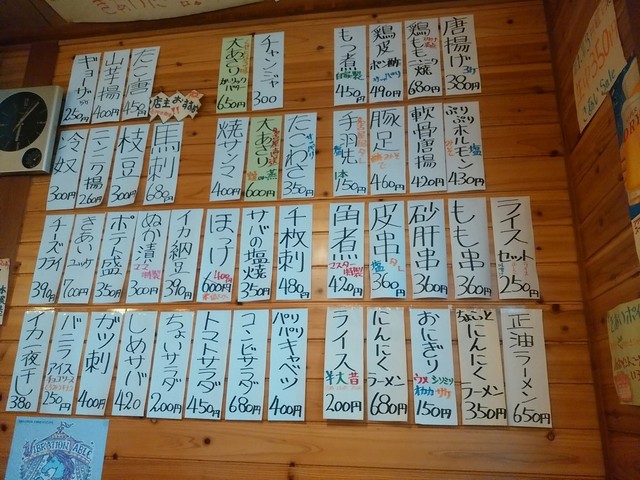 唐揚げ
3ケ
380円
鶏ももニンニク焼
680円
鶏皮ポン酢
490円
もつ煮
自家製
450円
チャンジャ
300
大あさり
ガーリックバター
650円
たこ唐
450円
山芋揚
400円
ギョーザ
250円
店主お勧
ぷりぷりホルモン
塩
430円
軟骨唐揚
420円
豚足
460円
手羽先
1本
150円
たこわさ
350円
大あさり
600円
焼サンマ
400円
馬刺
680円
枝豆
300円
ニンニク揚
260円
冷奴
300円
ライスセット
250円
もも串
360円
砂肝串
360円
皮串
塩 タレ
360円
角煮
マスター特製
420円
千枚刺
480円
サバの塩焼
350円
ほっけ
600円
イカ納豆
390円
ぬか漬
特製
300円
ポテト盛
350円
700円
チーズフライ
390円
正油ラーメン
650円
ちょいっとにんにくラーメン
350円
おにぎり
ウメ シソミソ
オカカ サケ
150円
にんにくラーメン
680円
ライス
半大昔
200円
パリパリキャベツ
400円
コンビサラダ
680円
トマトサラダ
450円
ちょいサラダ
200円
しめサバ
420
ガツ刺
400円
バニラアイス
チョコソース
250円
イカ一夜干し
380
VIBRATION TABLE